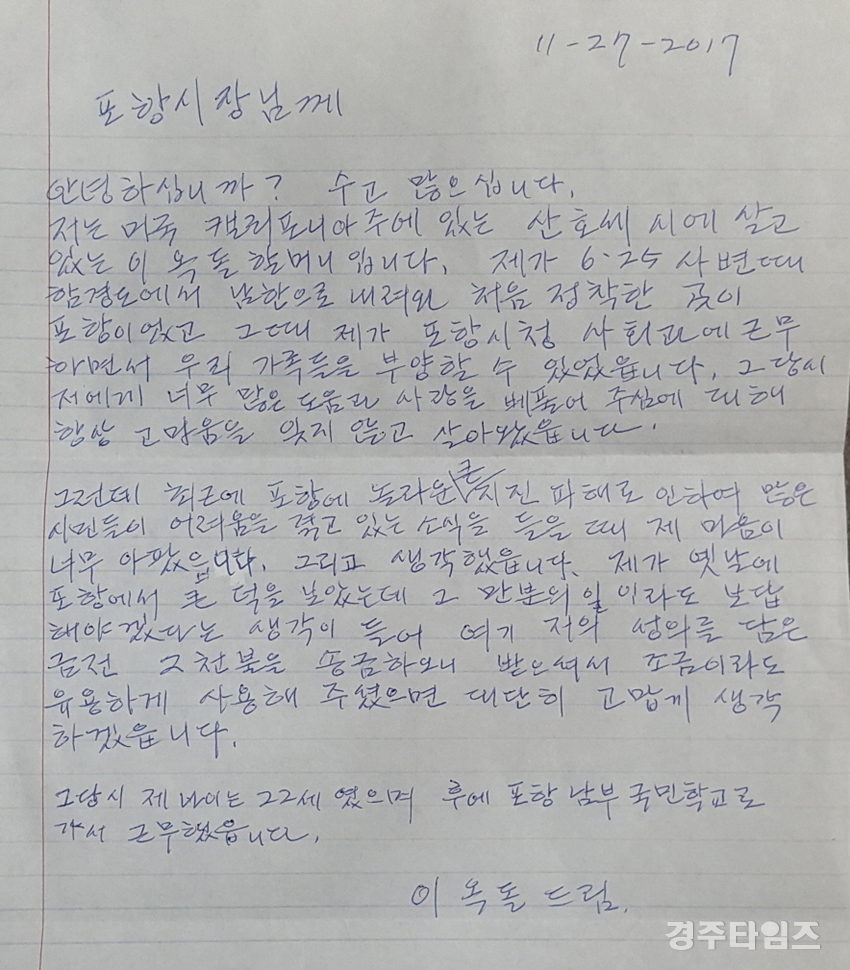 11-27-2017
포항시장님께
안녕하십니까? 수고 많으십니다.
저는 미국 캘리포니아주에 있는 산호세 시에 살고
있는 이옥돌 할머니입니다. 제가 6·25 사변때
함경도에서 남한으로 내려와 처음 정착한 곳이
포항이었고 그때 제가 포항시청 사회과에 근무
하면서 우리 가족들을 부양할 수 있었읍니다. 그당시
저에게 너무 많은 도움과 사랑을 베풀어 주심에 대해
항상 고마움을 잊지 않고 살아왔읍니다.
그런데 최근에 포항에 놀라운 큰 지진 파해로 인하여 많은
시민들이 어려움을 겪고 있는 소식을 들을 때 제 마음이
너무 아팠읍니다. 그리고 생각했읍니다. 제가 옛날에
포항에서 큰 덕을 보았는데 그 만분의 일이라도 보답
해야겠다는 생각이 들어 여기 저의 성의를 담은
금전 2천불을 송금하오니 받으셔서 조금이라도
유용하게 사용해 주셨으면 대단히 고맙게 생각
하겠읍니다.
그당시 제 나이는 22세 였으며 후에 포항 남부 국민학교로
가서 근무했읍니다.
이옥돌 드림.
경주타임즈